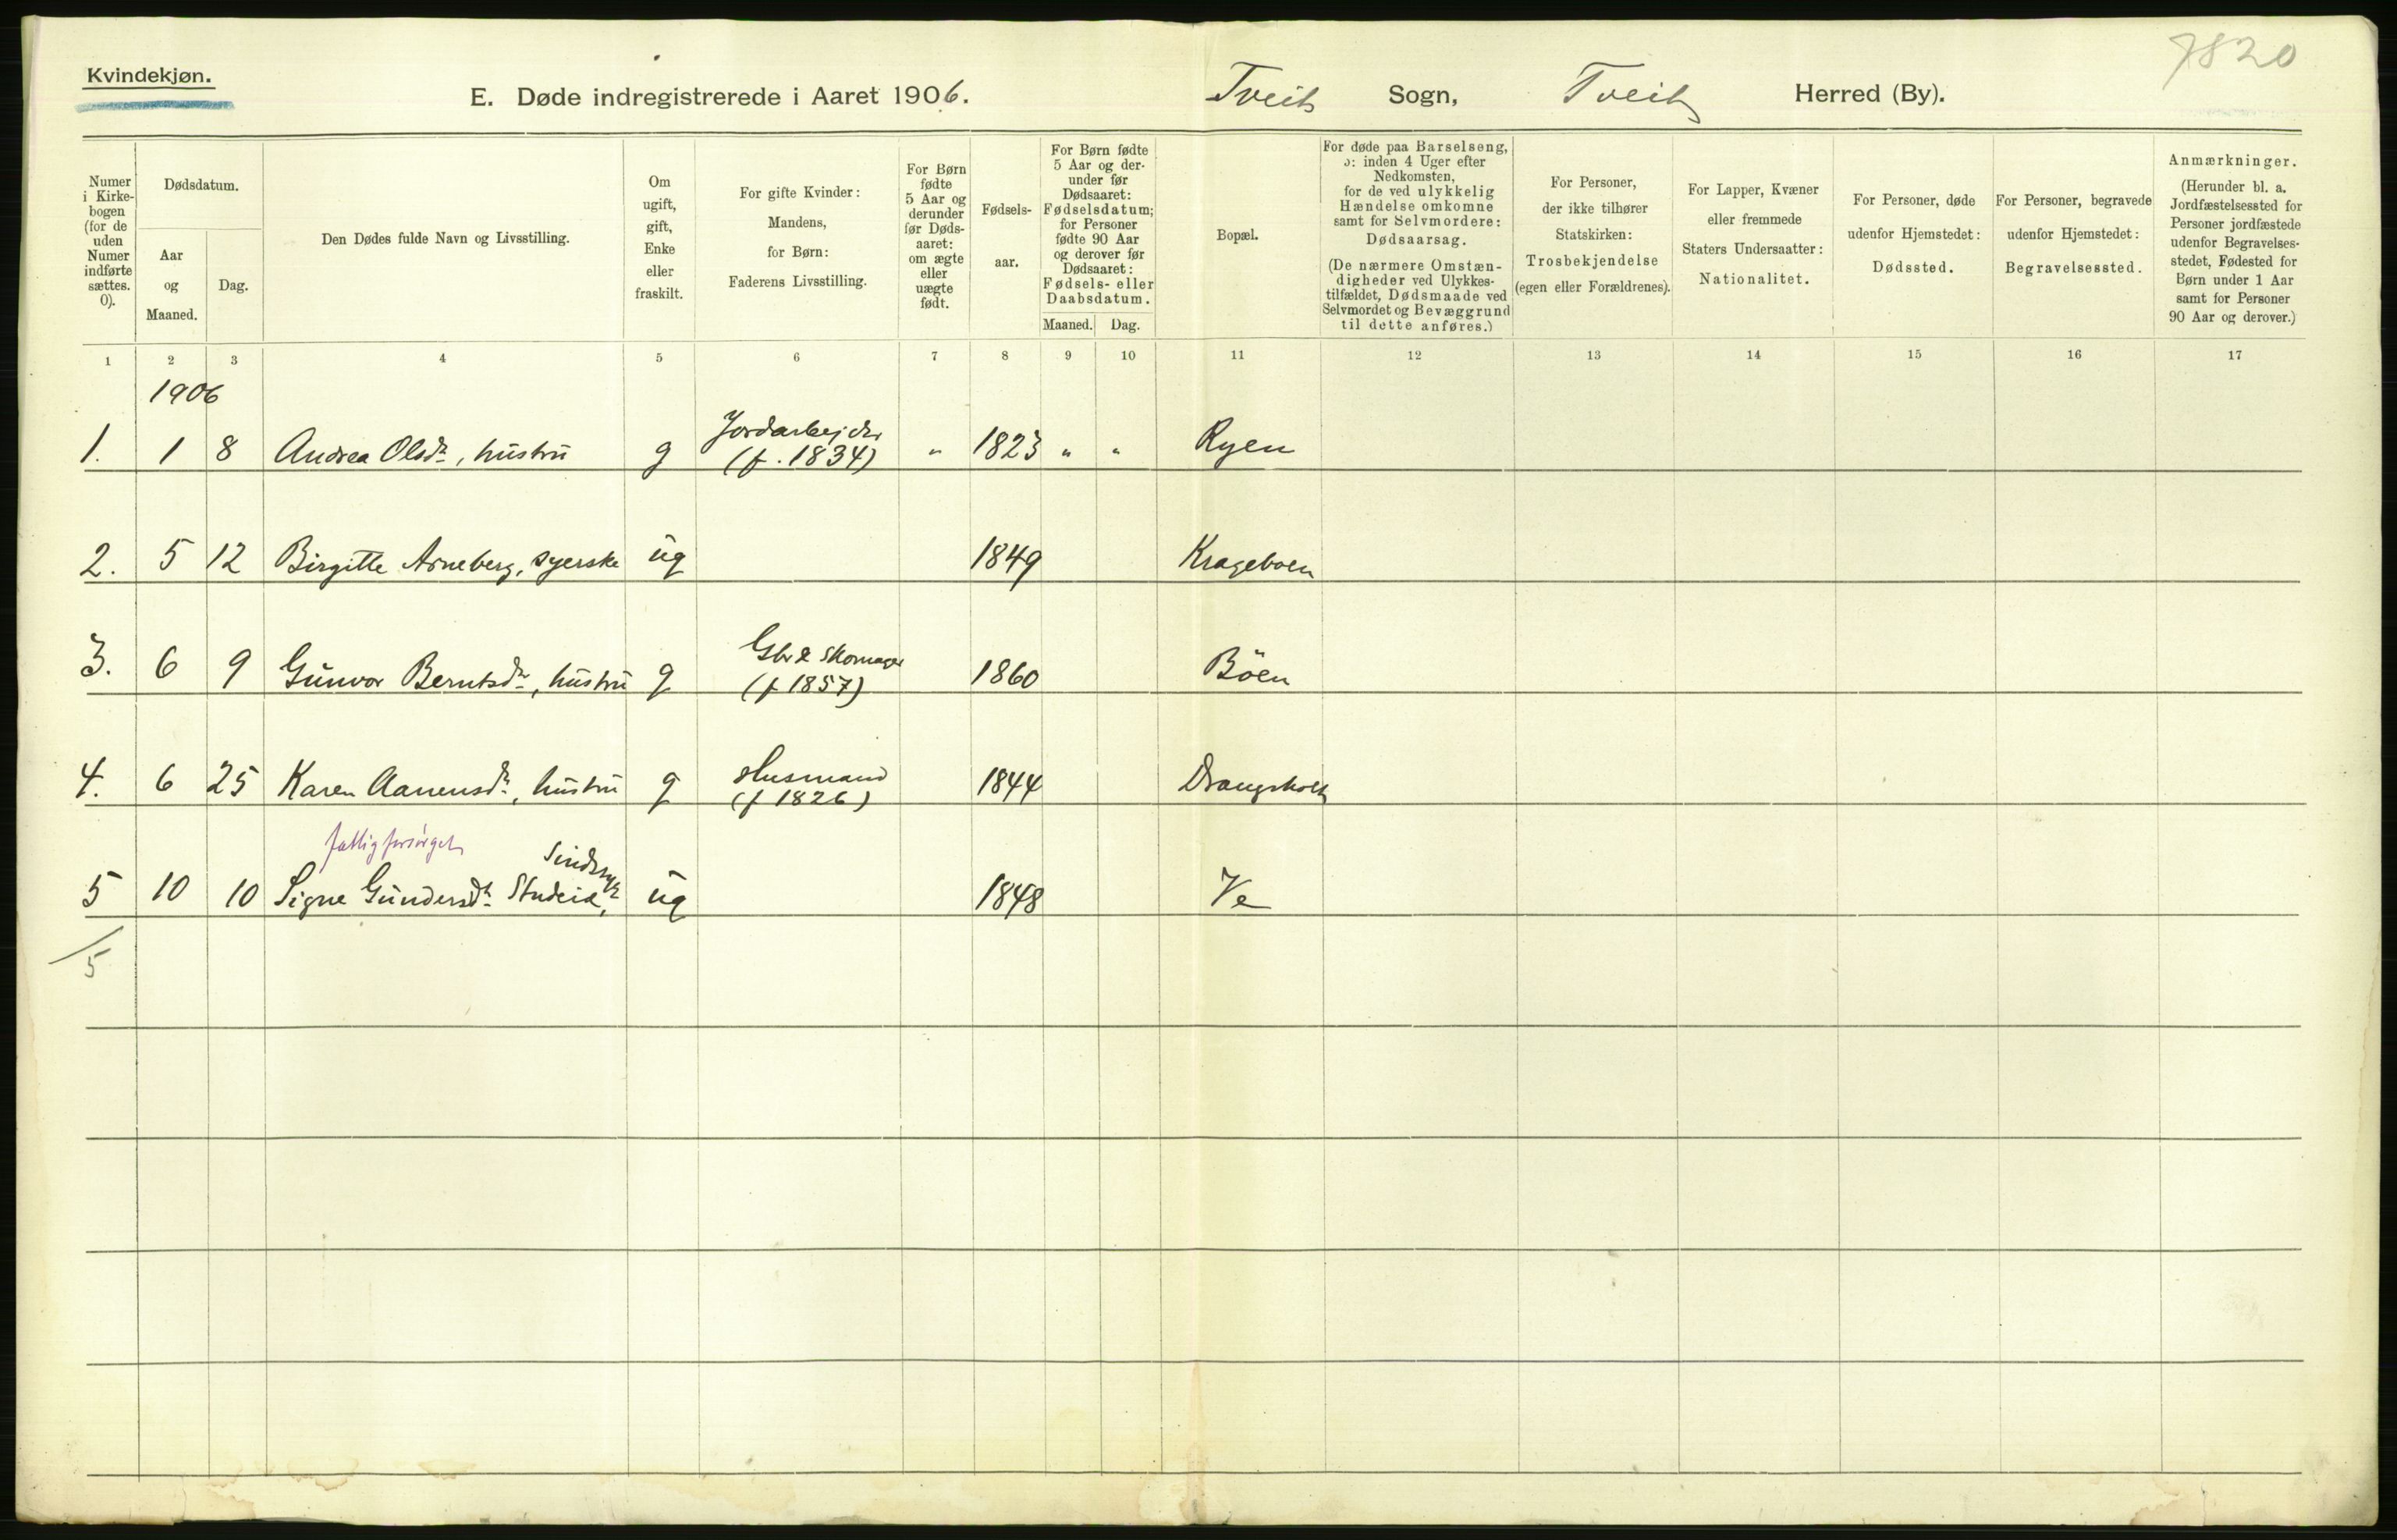 7820
Kvindekjøn.
E. Døde indregistrerede i Aaret 1906. Tveit Sogn, Tveit Herred (By).
Numer i Kirke-bogen (for de uden Numer indførte sættes. 0).
Dødsdatum.
Aar og Maaned.
Dag.
Den Dødes fulde Navn og Livsstilling.
Om ugift, gift, Enke eller fraskilt.
For gifte Kvinder: Mandens, for Børn: Faderens Livsstilling.
For Børn fødte 5 Aar og derunder før Døds-aaret: om ægte eller uægte født.
Fødsels-aar.
For Børn fødte 5 Aar og der-under før Dødsaaret: Fødselsdatum; for Personer fødte 90 Aar og derover før Dødsaaret: Fødsels- eller Daabsdatum.
Maaned. Dag.
Bopæl.
For døde paa Barselseng, ɔ: inden 4 Uger efter Nedkomsten, for de ved ulykkelig Hændelse omkomne samt for Selvmordere: Dødsaarsag. (De nærmere Omstæn-digheder ved Ulykkes-tilfældet, Dødsmaade ved Selvmordet og Bevæggrund til dette anføres.)
For Personer, der ikke tilhører Statskirken: Trosbekjendelse (egen eller Forældrenes).
For Lapper, Kvæner eller fremmede Staters Undersaatter: Nationalitet.
For Personer, døde udenfor Hjemstedet: Dødssted.
For Personer, begravede udenfor Hjemstedet: Begravelsessted.
Anmærkninger. (Herunder bl. a. Jordfæstelsessted for Personer jordfæstede udenfor Begravelses-stedet, Fødested for Børn under 1 Aar samt for Personer 90 Aar og derover.)
1 2 3 4 5 6 7 8 9 10 11 12 13 14 15 16 17
1906
1. 1 8 Andrea Olsdr, hustru g Jordarbejder (f. 1834) " 1823 " " Ryen
2. 5 12 Birgitte Arneberg, syerske ug 1849 Krageboen
3. 6 9 Gunvor Berntsdr, hustru g Gbr & Skomager (f 1857) 1860 Böen
4. 6 25 Karen Aanensdr, hustru g Husmand (f 1826) 1844 Drangsholt
fattigforsørget
5 10 10 Signe Gundersdr Studeia, Sindssyk ug 1848 Ve
5